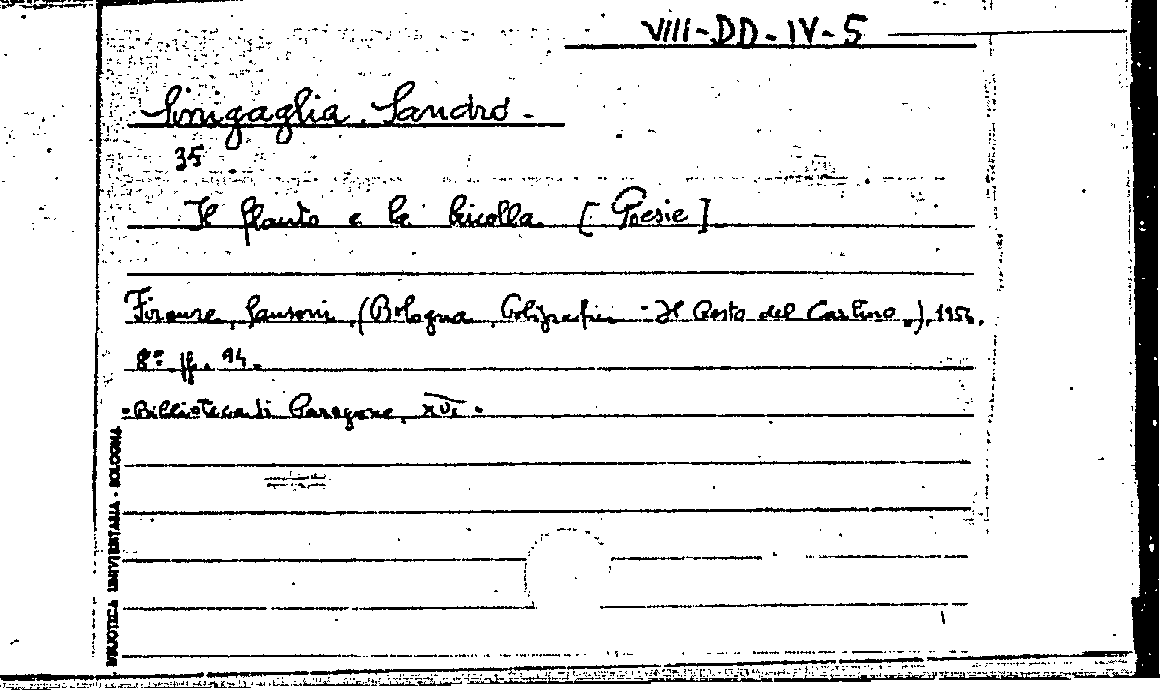 VIII-DD-IV-5
Sinigaglia Sandro.
35
Il flauto e la bricolla [Poesie]
Firenze, Sansoni, (Bologna, Poligrafici "Il Resto del Carlino"), 1954.
8°. pp. 94.
"Biblioteca di Paragone, XVI".
BIBLIOTECA UNIVERSITARIA - BOLOGNA